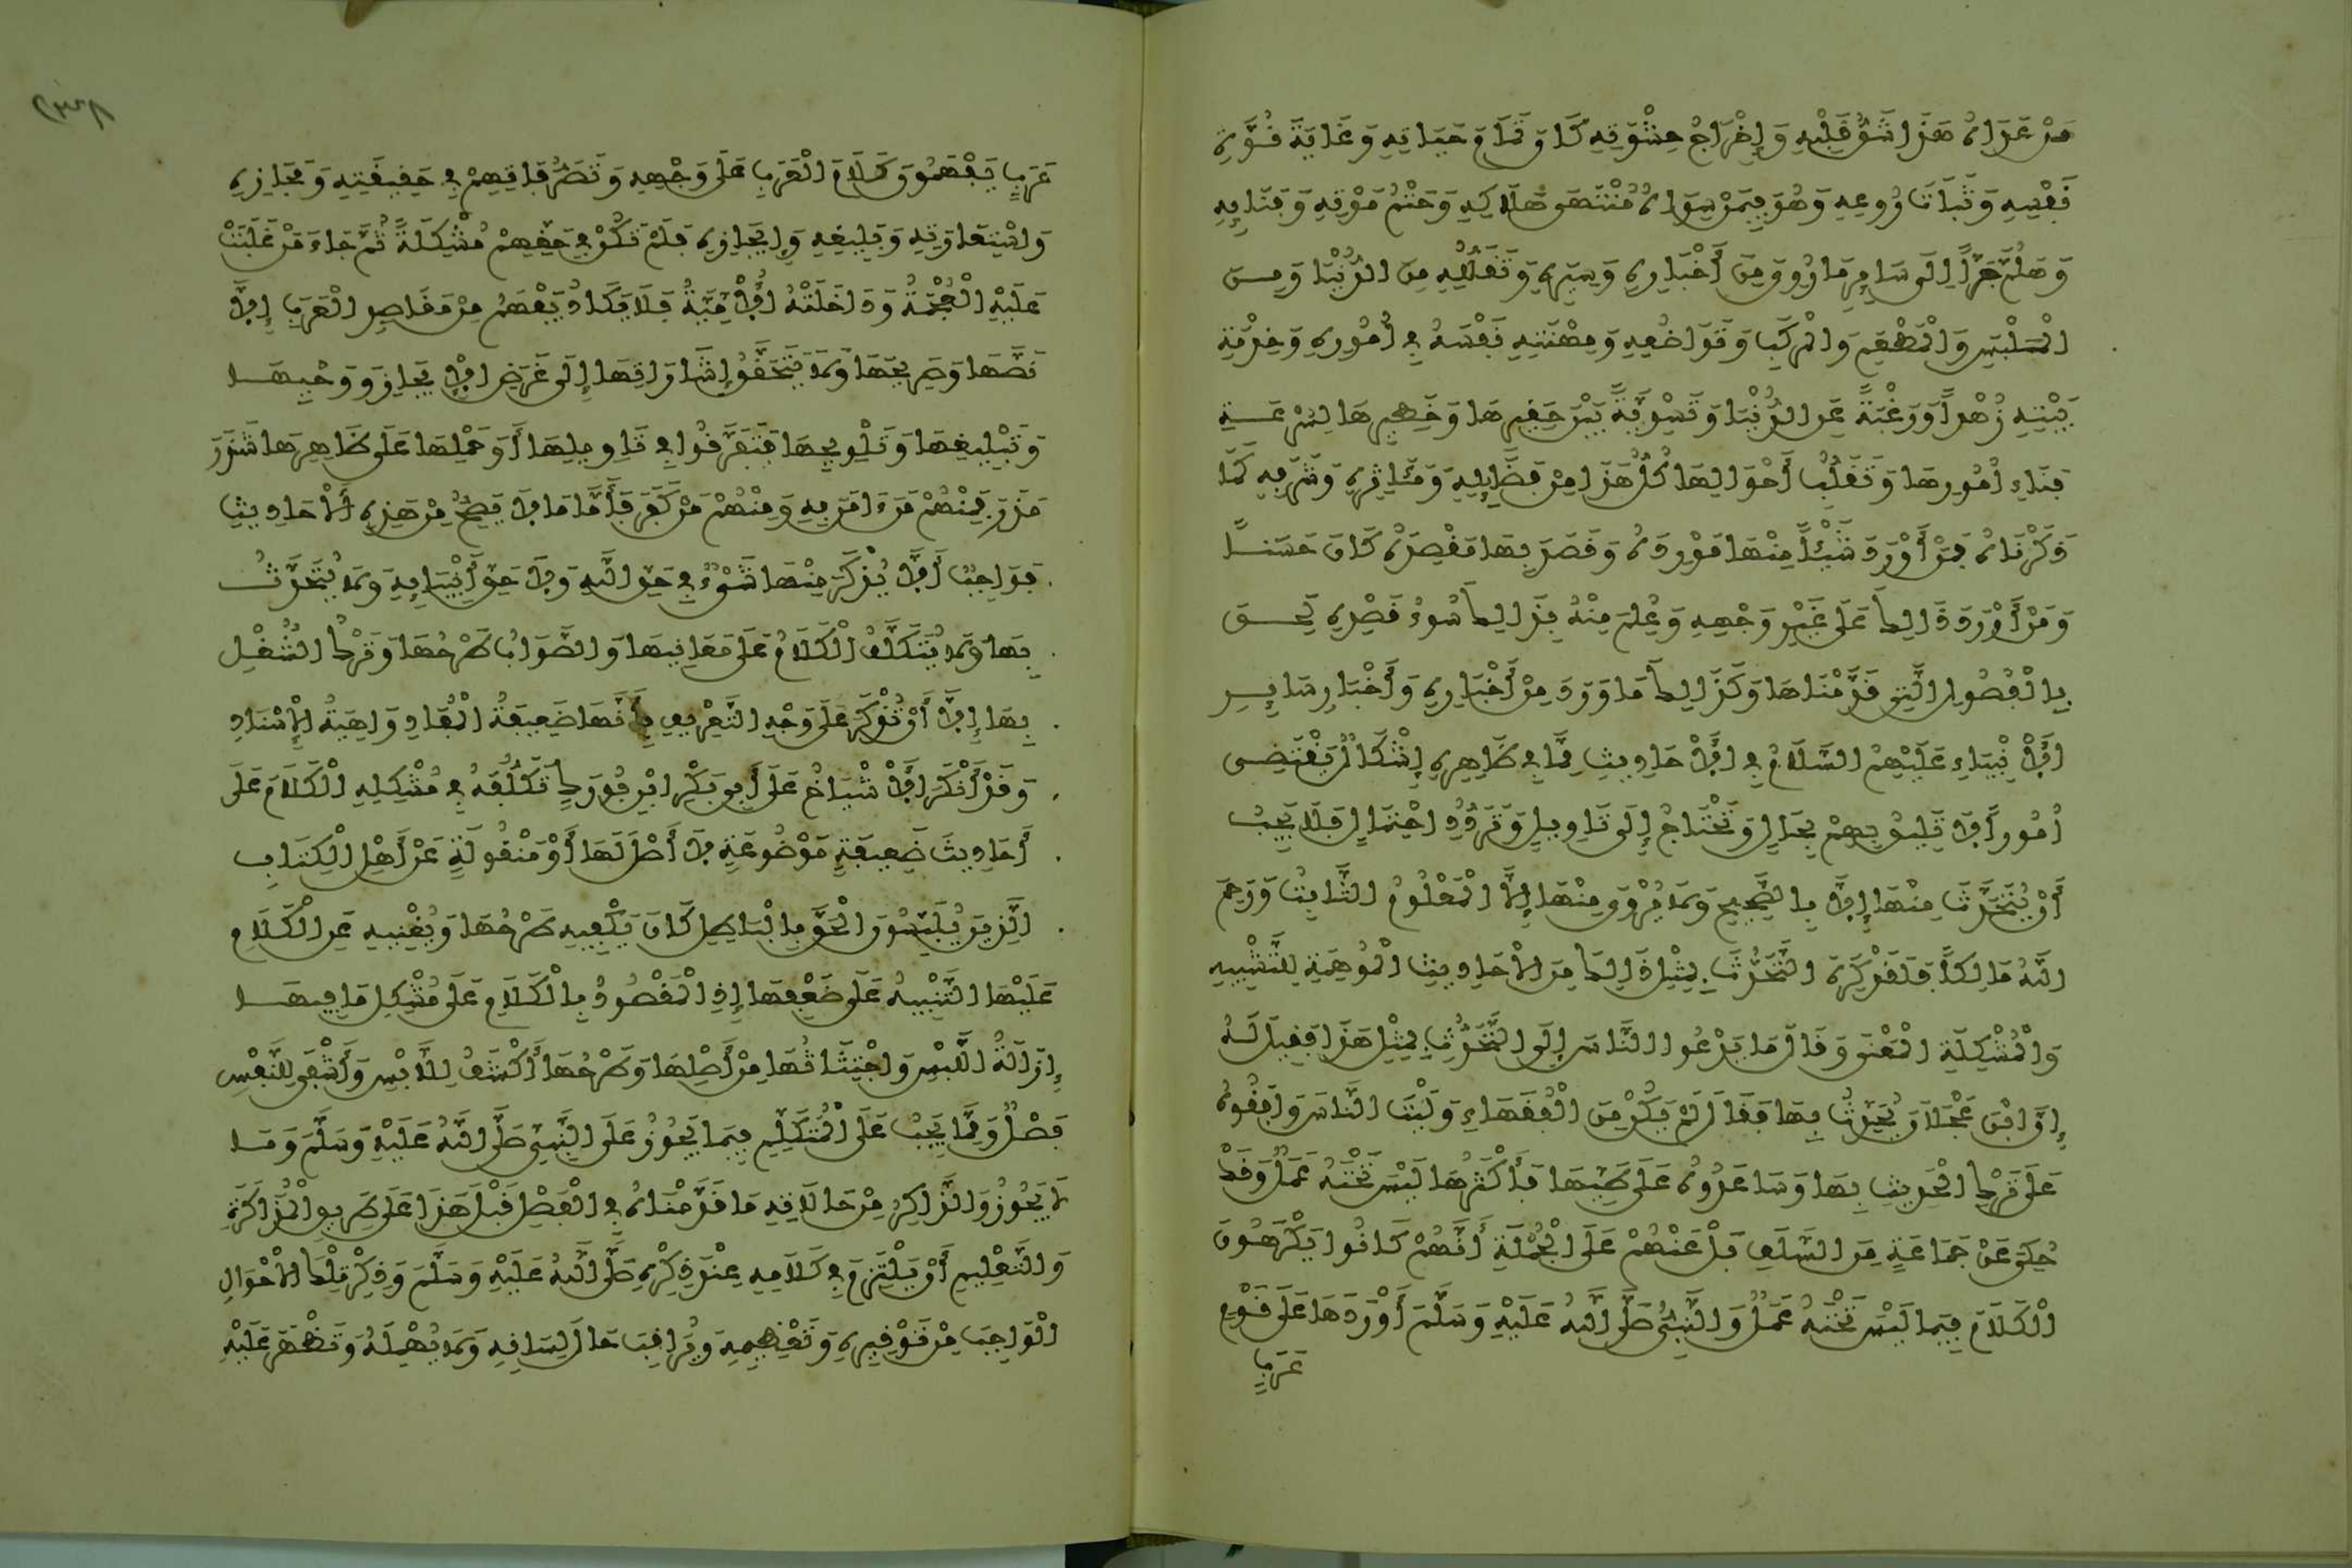 مَنْ عَدَاهُ هَذَا شَقُّ قَلْبِهِ وَإِخْرَاجُ حِشْوَتِهِ كَانَ تَمَامَ حَيَاتِهِ وَغَايَةَ قُوَّةِ
نَفْسِهِ وَثَبَاتَ رُوعِهِ وَهُوَ فِيمَنْ سِوَاهُ مُنْتَهَى هَلَاكِهِ وَحَتْمُ مَوْتِهِ وَفَنَائِهِ
وَهَلُمَّ جَرًّا إِلَى سَائِرِ مَا رُوِيَ مِنَ أَخْبَارِهِ وَسِيَرِهِ وَتَقَلُّلِهِ مِنَ الدُّنْيَا وَمِنَ
الْمَلْبَسِ وَالْمَطْعَمِ وَالْمَرْكَبِ وَتَوَاضُعِهِ وَمِهْنَتِهِ نَفْسَهُ فِي أُمُورِهِ وَخِدْمَةِ
بَيْتِهِ زُهْداً وَرَغْبَةً عَنِ الدُّنْيَا وَتَسْوِيَةً بَيْنَ حَقِيرِهَا وَخَطِيرِهَا لِسُرْعَةِ
فَنَاءِ أُمُورِهَا وَتَقَلُّبِ أَحْوَالِهَا كُلُّ هَذَا مِنْ فَضَائِلِهِ وَمَئَاثِرِهِ وَشَرَفِهِ كَمَا
ذَكَرْنَاهُ فَمَنْ أَوْرَدَ شَيْئاً مِنْهَا مَوْرِدَهُ وَقَصَدَ بِهَا مَقْصِدَهُ كَانَ حَسَناً
وَمَنْ أَوْرَدَ ذَالِكَ عَلَى غَيْرِ وَجْهِهِ وَعُلِمَ مِنْهُ بِذَالِكَ سُوءُ قَصْدِهِ لَحِقَ
بِالْفُصُولِ الَّتِي قَدَّمْنَاهَا وَكَذَالِكَ مَا وَرَدَ مِنْ أَخْبَارِهِ وَأَخْبَارِ سَائِرِ
الْأَنْبِيَاءِ عَلَيْهِمُ السَّلَامُ فِي الْأَحَادِيثِ مِمَّا فِي ظَاهِرِهِ إِشْكَالٌ يَقْتَضِي
أُمُوراً لَا تَلِيقُ بِهِمْ بِحَالٍ وَتَحْتَاجُ إِلَى تَاوِيلٍ وَتَرَدُّدِ احْتِمَالٍ فَلَا يَجِبُ
أَنْ يُتَحَدَّثَ مِنْهَا إِلَّا بِالصَّحِيحِ وَلَا يُرْوَى مِنْهَا إِلَّا الْمَعْلُومُ الثَّابِتُ وَرَحِمَ
اللَّهُ مَالِكاً فَلَقَدْ كَرِهَ التَّحَدُّثَ بِمِثْلِ ذَالِكَ مِنَ الْأَحَادِيثِ الْمُوهِمَةِ لِلتَّشْبِيهِ
وَالْمُشْكِلَةِ الْمَعْنَى وَقَالَ مَا يَدْعُوا النَّاسَ إِلَى التَّحَدُّثِ بِمِثْلِ هَذَا فَقِيلَ لَهُ
إِنَّ ابْنَ عَجْلَانَ يُحَدِّثُ بِهَا فَقَالَ لَمْ يَكُنْ مِنَ الْفُقَهَاءِ وَلَيْتَ النَّاسَ وَافَقُوهُ
عَلَى تَرْكِ الْحَدِيثِ بِهَا وَسَاعَدُوهُ عَلَى طَيِّهَا فَأَكْثَرُهَا لَيْسَ تَحْتَهُ عَمَلٌ وَقَدْ
حُكِيَ عَنْ جَمَاعَةٍ مِنَ السَّلَفِ بَلْ عَنْهُمْ عَلَى الْجُمْلَةِ أَنَّهُمْ كَانُوا يَكْرَهُونَ
الْكَلَامَ فِيمَا لَيْسَ تَحْتَهُ عَمَلٌ وَالنَّبِيُّ صَلَّى اللَّهُ عَلَيْهِ وَسَلَّمَ أَوْرَدَهَا عَلَى قَوْمٍ
عَرَبٍ
عَرَبٍ يَفْهَمُونَ كَلَامَ الْعَرَبِ عَلَى وَجْهِهِ وَتَصَرُّفَاتِهِمْ فِي حَقِيقَتِهِ وَمَجَازِهِ
وَاسْتِعَارَتِهِ وَبَلِيغِهِ وَإِيجَازِهِ فَلَمْ تَكُنْ فِي حَقِّهِمْ مُشْكِلَةً ثُمَّ جَاءَ مَنْ غَلَبَتْ
عَلَيْهِ الْعُجْمَةُ وَدَاخَلَتْهُ الْأُمِّيَّةُ فَلَا يَكَادُ يَفْهَمُ مِنْ مَقَاصِدِ الْعَرَبِ إِلَّا
نَصَّهَا وَصَرِيحَهَا وَلَا يَتَحَقَّقُ إِشَارَاتِهَا إِلَى غَرَضِ الْإِيجَازِ وَوَحْيِهَا
وَتَبْلِيغِهَا وَتَلْوِيحِهَا فَتَفَرَّقُوا فِي تَاوِيلِهَا أَوْ حَمْلِهَا عَلَى ظَاهِرِهَا شَذَرَ
مَذَرَ فَمِنْهُمْ مَنَ ءَامَنَ بِهِ وَمِنْهُمْ مَنْ كَفَرَ فَأَمَّا مَا لَا يَصِحُّ مِنْ هَذِهِ الْأَحَادِيثِ
فَوَاجِبٌ أَلَّا يُذْكَرَ مِنْهَا شَيْءٌ فِي حَقِّ اللَّهِ وَلَا حَقِّ أَنْبِيَائِهِ وَلَا يُتَحَدَّثُ
بِهَا وَلَا يُتَكَلَّفُ الْكَلَامُ عَلَى مَعَانِيهَا وَالصَّوَابُ طَرْحُهَا وَتَرْكُ الشُّغْلِ
بِهَا إِلَّا أَنْ تُذْكَرَ عَلَى وَجْهِ التَّعْرِيفِ بِأَنَّهَا ضَعِيفَةُ الْمَقَادِ وَاهِيَةُ الْإِسْنَادِ
وَقَدْ أَنْكَرَ الْأَشْيَاخُ عَلَى أَبِي بَكْرِ ابْنِ فُورَكٍ تَكَلُّفَهُ فِي مُشْكِلِهِ الْكَلَامَ عَلَى
أَحَادِيثَ ضَعِيفَةٍ مَوْضُوعَةٍ لَا أَصْلَ لَهَا أَوْ مَنْقُولَةٍ عَنْ أَهْلِ الْكِتَابِ
الَّذِينَ يُلَبِّسُونَ الْحَقَّ بِالْبَاطِلِ كَانَ يَكْفِيهِ طَرْحُهَا وَيُغْنِيهِ عَنِ الْكَلَامِ
عَلَيْهَا التَّنْبِيهُ عَلَى ضَعْفِهَا إِذِ الْمَقْصُودُ بِالْكَلَامِ عَلَى مُشْكِلِ مَا فِيهَا
إِزَالَةُ اللَّبْسِ وَاجْتِثَاثُهَا مِنْ أَصْلِهَا وَطَرْحُهَا أَكْشَفُ لِلَّبْسِ وَأَشْفَى لِلنَّفْسِ
فَصْلٌ وَمِمَّا يَجِبُ عَلَى الْمُتَكَلِّمِ فِيمَا يَجُوزُ عَلَى النَّبِيِّ صَلَّى اللَّهُ عَلَيْهِ وَسَلَّمَ وَمَا
لَا يَجُوزُ وَالذَّاكِرِ مِنْ حَالَاتِهِ مَا قَدَّمْنَاهُ فِي الْفَصْلِ قَبْلَ هَذَا عَلَى طَرِيقِ الْمُذَاكَرَةِ
وَالتَّعْلِيمِ أَنْ يَلْتَزِمَ فِي كَلَامِهِ عِنْدَ ذِكْرِهِ صَلَّى اللَّهُ عَلَيْهِ وَسَلَّمَ وَذِكْرِ تِلْكَ الْأَحْوَالِ
الْوَاجِبَ مِنْ تَوْقِيرِهِ وَتَعْظِيمِهِ وَيُرَاقِبَ حَالَ لِسَانِهِ وَلَا يُهْمِلَهُ وَتَظْهَرَ عَلَيْهِ